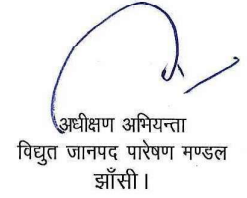 अधीक्षण अभियन्ता
विधुत जानपद पारेषण मण्डल
झाँसी।